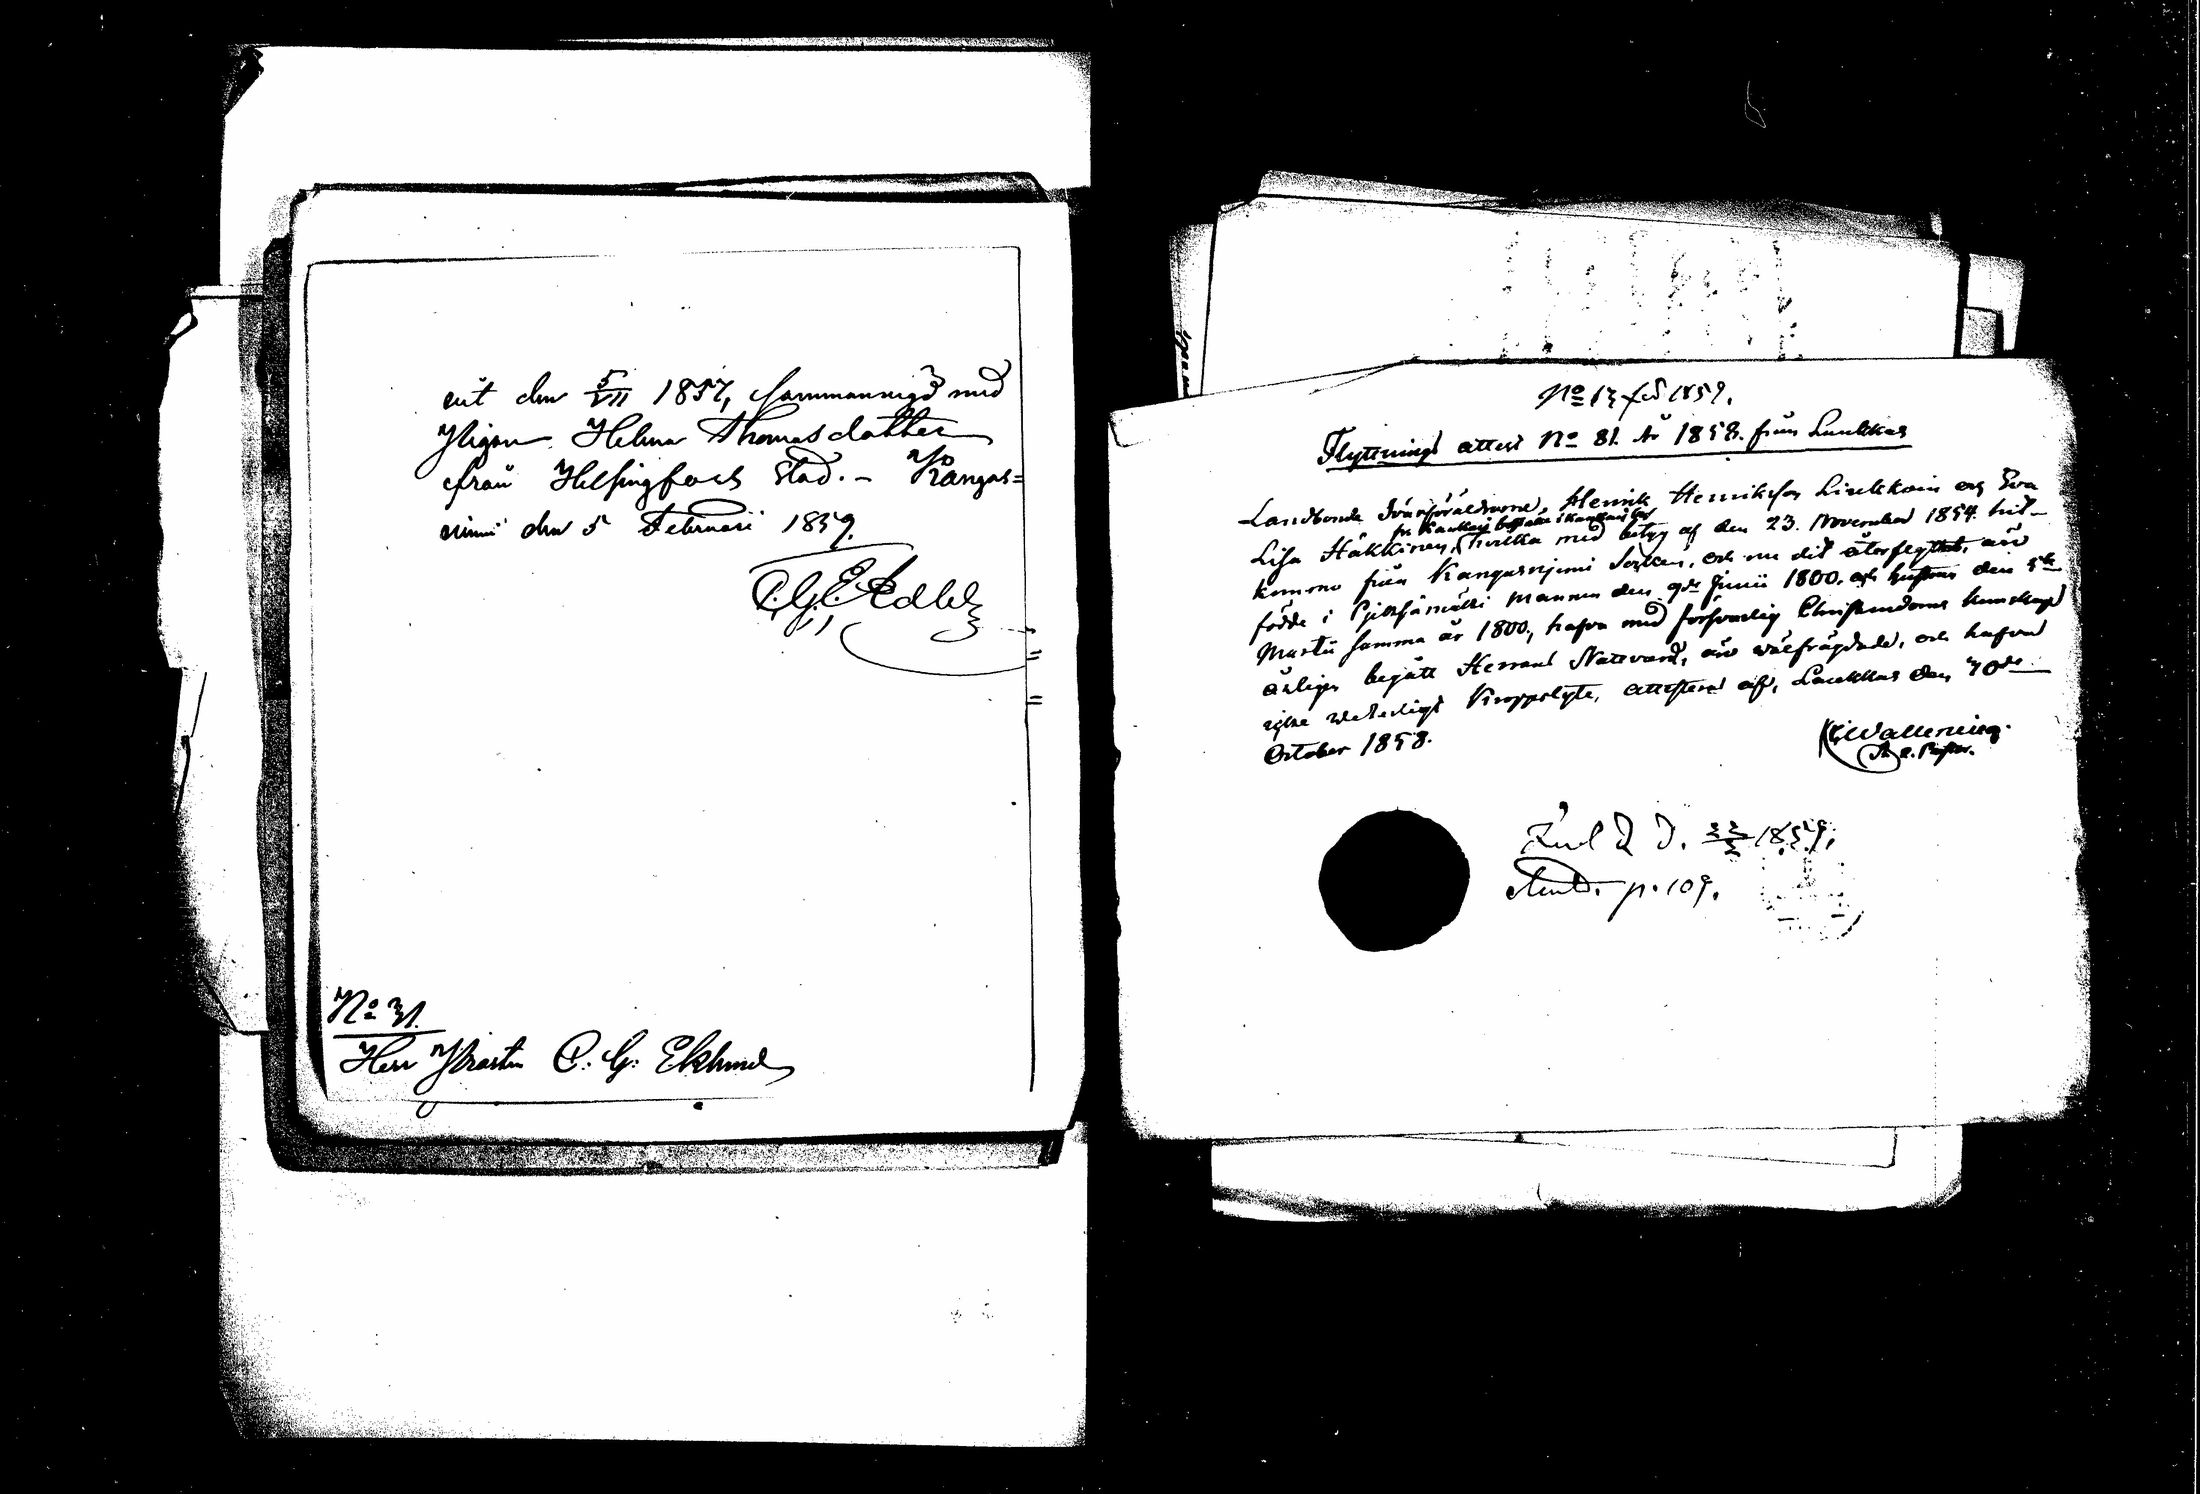 eut den 5/VII 1857, sammanvigd med
Pigan Helena Thomasdotter
från Helsingfors Stad. - Kangas=
niemi den 5 Februari 1859.
No 31.
Herr Pastor C. G. Eklund
No 13 1859.
Flyttnings attest No 81. År 1858. från Laukkas
Landbonde Svärföräldrarne, Henrik Henriksson Liukkoin och Eva
Lisa Häkkinen, hvilka med betyg af den 23. November 1854. hit-
komne från Kangasnjemi Socken, och nu dit återflyttat, äro
födde i Pjeksämäki Mannen den 9de Junii 1800. och hustrun den 5te
Martii samma år 1800, hafva med försvarlig Christendoms kunskap
årligen begått Herrans Nattvard, äro välfrägdade, och hafva
icke veterligt Kroppslyte, attesterar af, Laukkas den 70de
October 1858.
C. Wallenius.
p. 109.